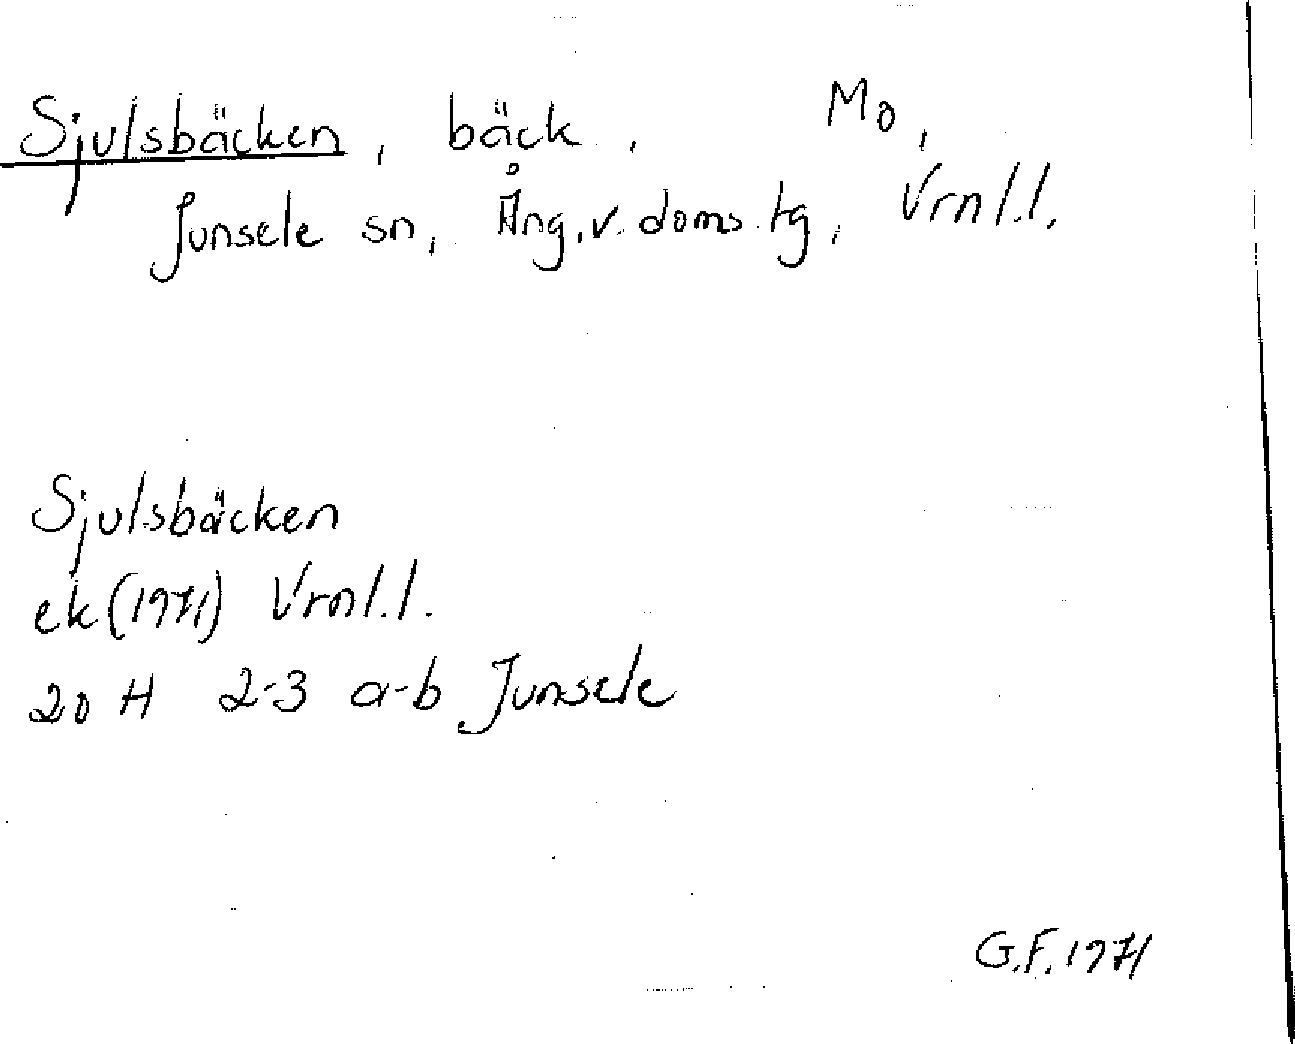 Sjulsbäcken, bäck, Mo,
Junsele sn, Ång.v. doms.tg, Vrnl.l.
Sjulsbäcken
ek (1971) Vrnl.l.
20 H 2-3 a-b Junsele
G.F. 1971